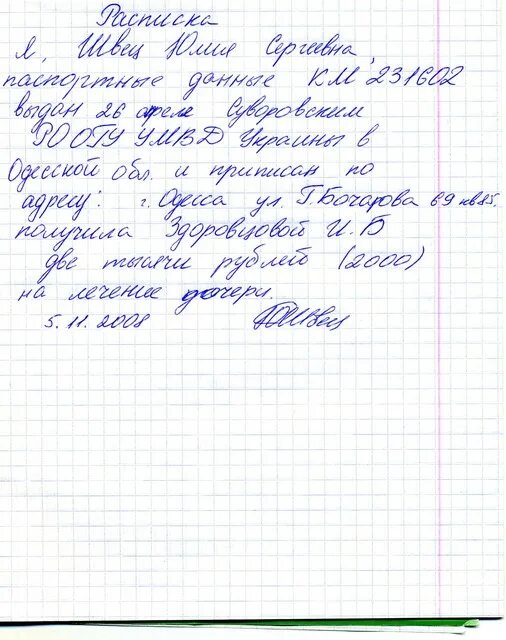 Расписка
Я, Швец Юлия Сергеевна,
паспортные данные КМ 231602
выдан 26 Суворовским
РО ОГУ УМВД Украины в
Одесской обл. и приписан по
адресу: г. Одесса ул. Г. Бочарова 69 кв 85.
получила Здоровцовой И.Б
две тысячи рублей (2000)
на лечение дочери.
5.11.2008 ЮШвец